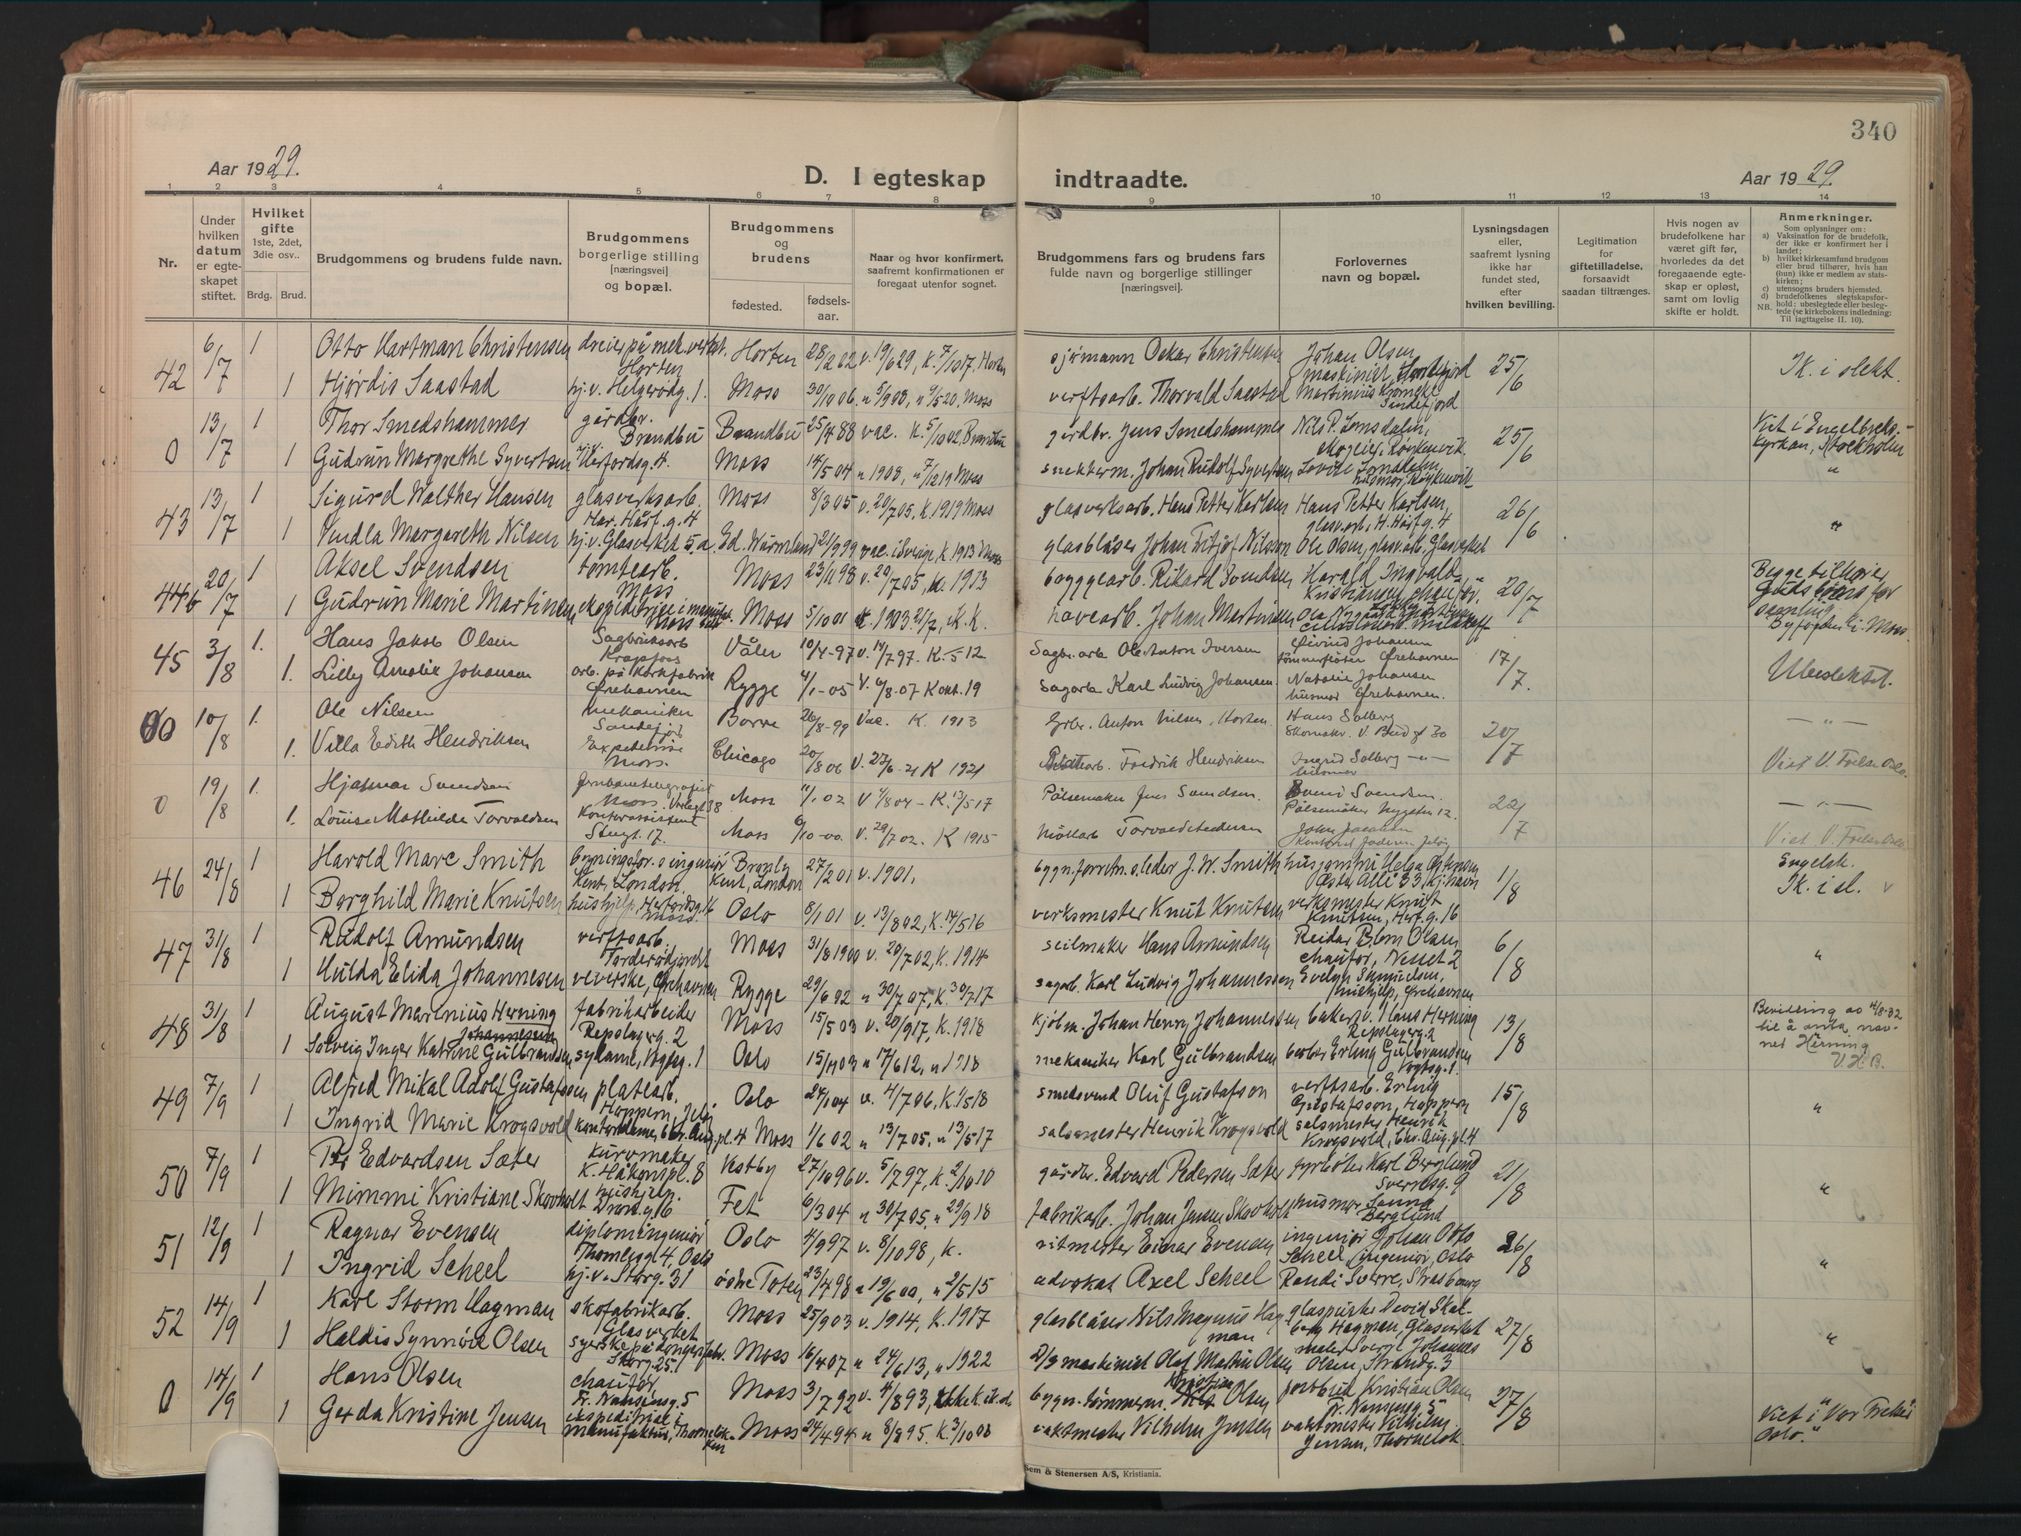 340
Aar 1929.
D. I egteskap
indtraadte.
Aar 1929.
1 2 3 4 5 6 7 8 9 10 11 12 13 14
Nr.
Under hvilken datum er egteskapet stiftet.
Hvilket gifte 1ste, 2det, 3die osv..
Brdg. Brud.
Brudgommens og brudens fulde navn.
Brudgommens borgerlige stilling [næringsvei] og bopæl.
Brudgommens og brudens
fødested. fødselsaar.
Naar og hvor konfirmert, saafremt konfirmationen er foregaat utenfor sognet.
Brudgommens fars og brudens fars fulde navn og borgerlige stillinger [næringsvei].
Forlovernes navn og bopæl.
Lysningsdagen eller, saafremt lysning ikke har fundet sted, efter hvilken bevilling.
Legitimation for giftetilladelse, forsaavidt saadan tiltrænges.
Hvis nogen av brudefolkene har været gift før, hvorledes da det foregaaende egteskap er opløst, samt om lovlig skifte er holdt.
Anmerkninger.
Som oplysninger om:
a) Vaksination for de brudefolk, der ikke er konfirmert her i landet;
b) hvilket kirkesamfund brudgom eller brud tilhører, hvis han (hun) ikke er medlem av statskirken;
c) utensogns bruders hjemsted.
d) brudefolkenes slegtskapsforhold: ubeslegtede eller beslegtede (se kirkebokens indledning: Til iagttagelse II. 10).
NB.
42 6/7 1 Otto Hartman Christensen dreier på mek. verkst. Horten Horten 28/2 02 v. 19/6 29, k. 7/10 17, Horten sjømann Oskar Christensen Johan Olsen maskinist 25/6 Ik. i slekt.
1 Hjørdis Saastad hj. v. Helgerødg. 1. Moss 30/10 06 " 5/9 08, " 9/5 20. Moss verftsarb. Thorvald Saastad Sandefjord
0 13/7 1 Thor Smedshammer gårdbr. Brandbu Brandbu 25/4 88 vac. k. 5/10 02, Brandbu gårdbr. Jens Smedshammer Nils P. Lonsdalen, Røykenvik 25/6 Viet i Engelbrekts-kyrkan, Stockholm
1 Gudrun Margrethe Syvertsen Herfordsg. 4. Moss 14/5 04 " 1908, " 7/12 19 Moss snekkerm. Johan Rudolf Syvertsen husmor, Røykenvik "
43 13/7 1 Sigurd Walther Hansen glasverksarb. Har. Hårf. g. 4 Moss 8/3 05 v. 20/7 05, k. 1919 Moss glasverksarb. Hans Petter Karlsen Hans Petter Karlsen, glasv. arb. H. Hårf g. 4 26/6 "
1 Vendla Margareth Nilsen hj. v. Glasverket 5. a. Ed. Wärmland 21/9 99 vac. i Sverige k. 1913 Moss glasblåser Johan Fritjof Nilsson Ole Olsen, glasv. arb. Glasverket
44 b 20/7 1 Aksel Svendsen tomtearb. Moss Moss 23/11 98 v. 20/7 05, k. 1913 byggearb. Rikard Svendsen Harald Ingvald Kristiansen, chauffør. 20/7 Begge tilhører
1 Gudrun Marie Martinsen Moss 5/10 01 havearb. Johan Martinsen i Moss.
45 3/8 1. Hans Jakob Olsen Sagbruksarb Krapfoss Våler 10/4-97 v. 14/7 97. K. 5 12 Sagbr. arb Ole Anton Iversen Øivind Johansen tømmerfløter Ørehavnen 17/7. Ubeslektet.
1. Lilly Amalie Johansen arb. på Korkfabrik Ørehavnen Rygge 4/1-05 V. 6/8-07 K okt. 19 Sagarb. Karl Ludvig Johansen. Natalie Johansen husmor Ørehavnen.
0 10/8 1. Ole Nilsen mekaniker Sandefjord Borre 26/8-99 Vac. K. 1913 Grbr. Anton Nilsen, Horten. Hans Solberg Skomakr. V. Brd gt 30 20/7 — " —
1. Villa Edith Hendriksen Expeditrise Moss. Chicago 20/8 06 K 1921 Fredrik Hendriksen Ingrid Solberg — " — husmor Viet V. Frelser Oslo.
0 19/8 1. Hjalmar Svendsen Jernbanetelegrafist Moss. Moss 11/1 02 V 4/8 04 – K. 13/5 17 Pølsemaker Jens Svendsen. Svend Svendsen. Pølsemaker Myggeten 12. 22/7 — " —
1. Louise Mathilde Torvaldsen Kontorassistent Storgt. 17. Moss 6/10-00. V. 29/7 02. K 1915 John Jacobsen Viet V. Frelser Oslo
46 24/8 1 Harold Marc Smith bygningsfor. o ingeniør Kent, London. Bromley Kent, London 27/2 01 v. 1901. bygn. forretn. o. leder J. W. Smith husjomfru Helga Østersen Øster Allé 33, Kj.havn 1/8 Engelsk.
1 Borghild Marie Knutsen hushjelp, Herfordsg. 16 Moss Oslo 8/1 01 v. 13/8 02, k. 14/5 16 verksmester Knut Knutsen verksmester Knut Knutsen, Herf. g. 16 Ik. i sl. v
47 31/8 1 Rudolf Amundsen verftsarb. Torderødjordet Moss 31/8 1900 v. 20/7 02, k. 1914 seilmaker Hans Amundsen Reidar Blom Olsen chaufør, Nesset 2 6/8 "
1 Hulda Elida Johannesen veverske, Ørehavnen Rygge 29/6 02 " 30/7 07, k. 30/7 17 sagarb. Karl Ludvig Johannessen Evelyn Samuelsen, hushjelp, Ørehavnen
48 31/8 1 August Marinius Herning Johannessen fabrikarbeider Repslagerg. 2 Moss 15/5 03 v. 20/9 17, k. 1918 kjølm. Johan Henry Johannessen baker v. Hans Herning Repslagerg. 2 13/8 Bevilling av 4/8-32 til å anta navnet Herning V. H. B.
1 Solveig Inger Katrine Gulbrandsen sydame, Vogtsg. 1 Oslo 15/11 03 " 17/6 12, " 1918 mekaniker Karl Gulbrandsen berber Erling Gulbrandsen Vogtsg. 1.
49 7/9 1 Alfred Mikal Adolf Gustafssen platearb. Hoppern, Jeløy Oslo 24/1 04 v. 4/7 06, k. 1/5 18 smedsvend Oluf Gustafson verftsarb. Erling Gustafsson, Hoppern 15/8 "
1 Ingrid Marie Krogsvold kontordame, Chr. Aug. pl. 4 Moss 1/6 02 " 13/7 05, " 13/5 17 salsmester Henrik Krogsvold salsmester Henrik Krogsvold, Chr. Aug. pl. 4
50 7/9 1 Per Edvardsen Sæter kurvmaker K. Håkonspl. 8 Vestby 27/10 96 v. 5/7 97, k. 2/10 10 gårdbr. Edvard Pedersen Sæter fyrbøter Karl Berglund Sverresg. 9 21/8 "
1 Mimmi Kristiane Skovholt hushjelp. Dron. g. 16 Fet 6/3 04 " 30/7 05, " 29/9 18 fabrikarb. Johan Jensen Skovholt husmor Sanna Berglund
51 12/9 1 Ragnar Evensen diplomingeniør Thomleggt 4, Oslo Oslo 4/9 97 v. 8/10 98, k. ritmester Einar Evensen ingeniør Johan Otto Scheel ingeniør, Oslo 26/8 "
1 Ingrid Scheel hj. v. Storg. 31 østre Toten 23/4 98 " 19/6 00, " 2/5 15 advokat Axel Scheel Randi Sverre, Strasbourg
52 14/9 1 Karl Storm Hagman skofabrikarb. Glasverket Moss 25/9 03 v. 1914, k. 1917 glasblåser Nils Magnus Hagman glaspusser David Skalberg Hagman, Glasverket 27/8 "
1 Haldis Synnøve Olsen syerske på dongerifabr. Skog. 25. Moss 16/4 07 " 24/6 13, " 1922 D/S maskinist Olaf Martin Olsen maler Sverg Johannes Olsen, Strandg. 3
0 14/9 1 Hans Olsen chaufør Fr. Nansensg. 5 Moss 3/7 92 v. 4/8 93, bygn. tømmerm. Kristian Olsen postbud Kristian Olsen Fr. Nansensg. 5 27/8 "
1 Gerda Kristine Jensen ekspeditrise i manufaktur, Moss 24/4 94 " 8/8 95. k. 3/10 08 vaktmester Vilhelm Jensen vaktmester Vilhelm Jensen, Viet i Vor Frelser Oslo.
Sem & Stenersen A/S, Kristiania.